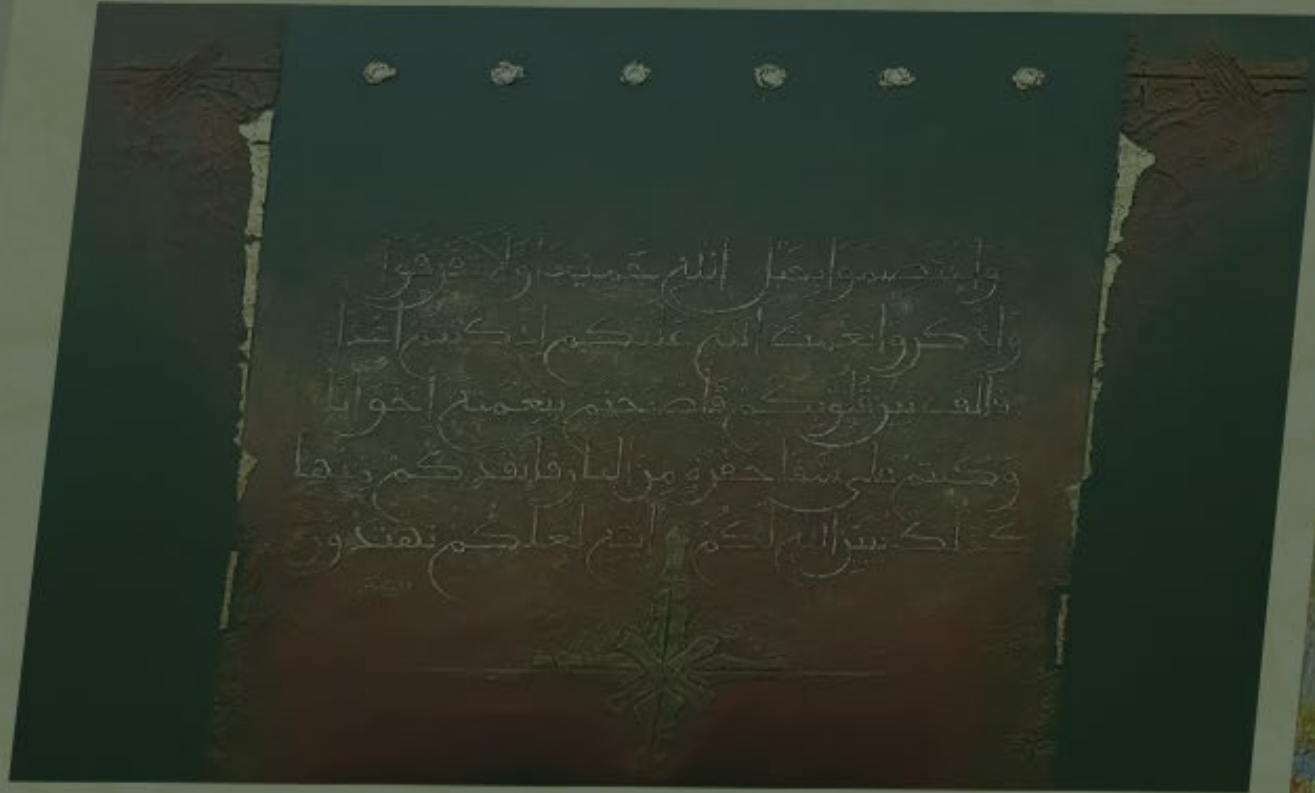 واعتصموا بحبل الله جميعا ولا تفرقوا
واذكروا نعمت الله عليكم إذ كنتم أعدا
فألف بين قلوبكم فأصبحتم بنعمته إخوانا
وكنتم على شفا حفرة من النار فأنقذكم منها
كذلك يبين الله لكم آياته لعلكم تهتدون